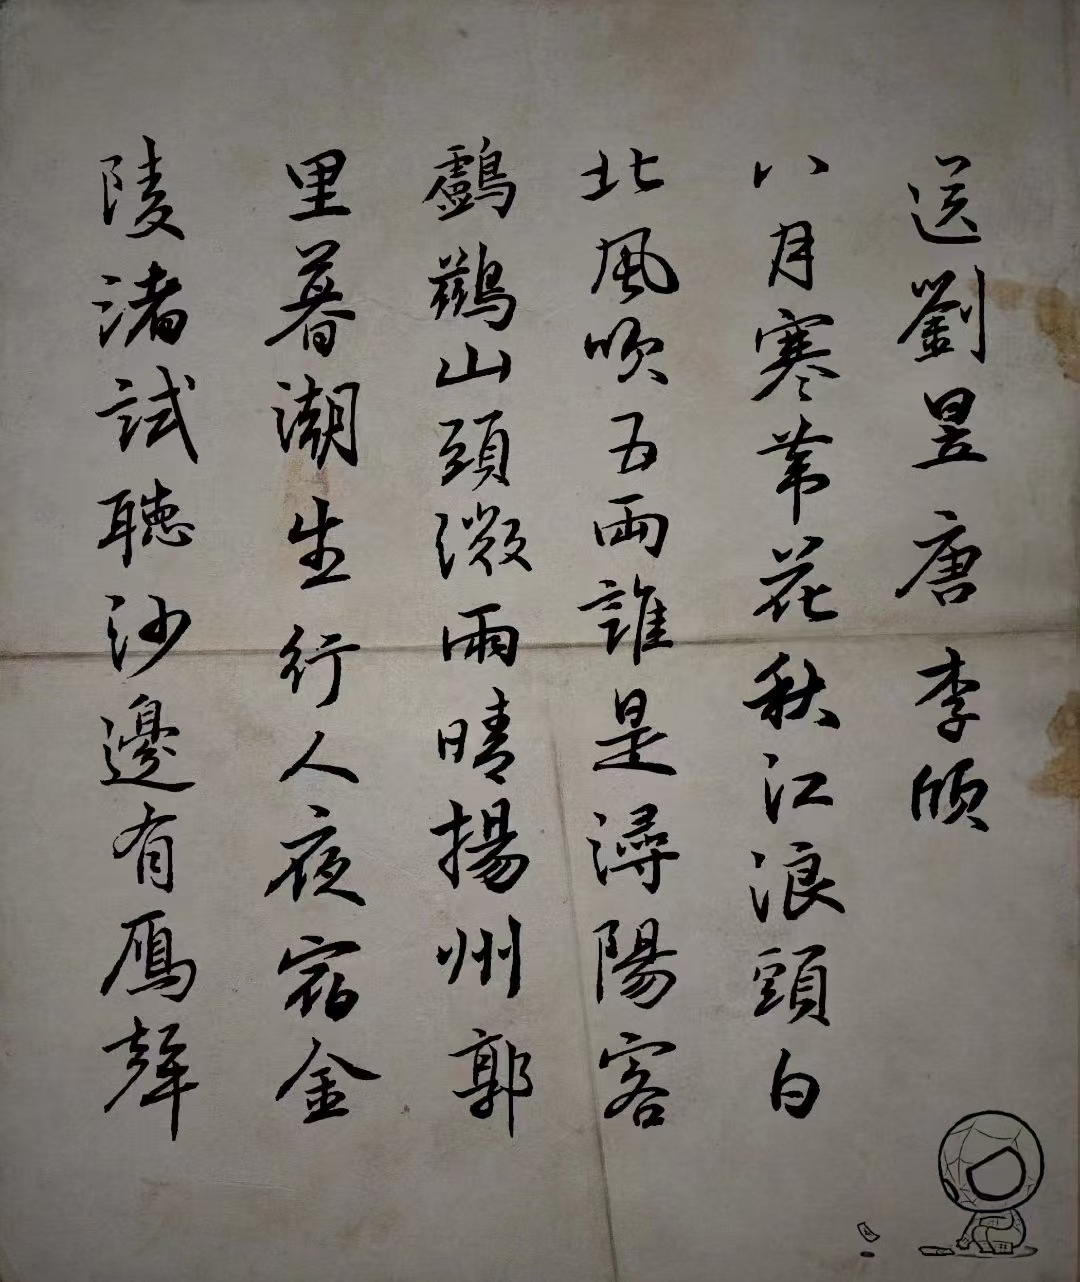 送劉昱唐李頎
八月寒葦花秋江浪頭白
北風吹五兩誰是潯陽客
鸕鷀山頭微雨晴揚州郭
里暮潮生行人夜宿金
陵渚試聽沙邊有雁聲